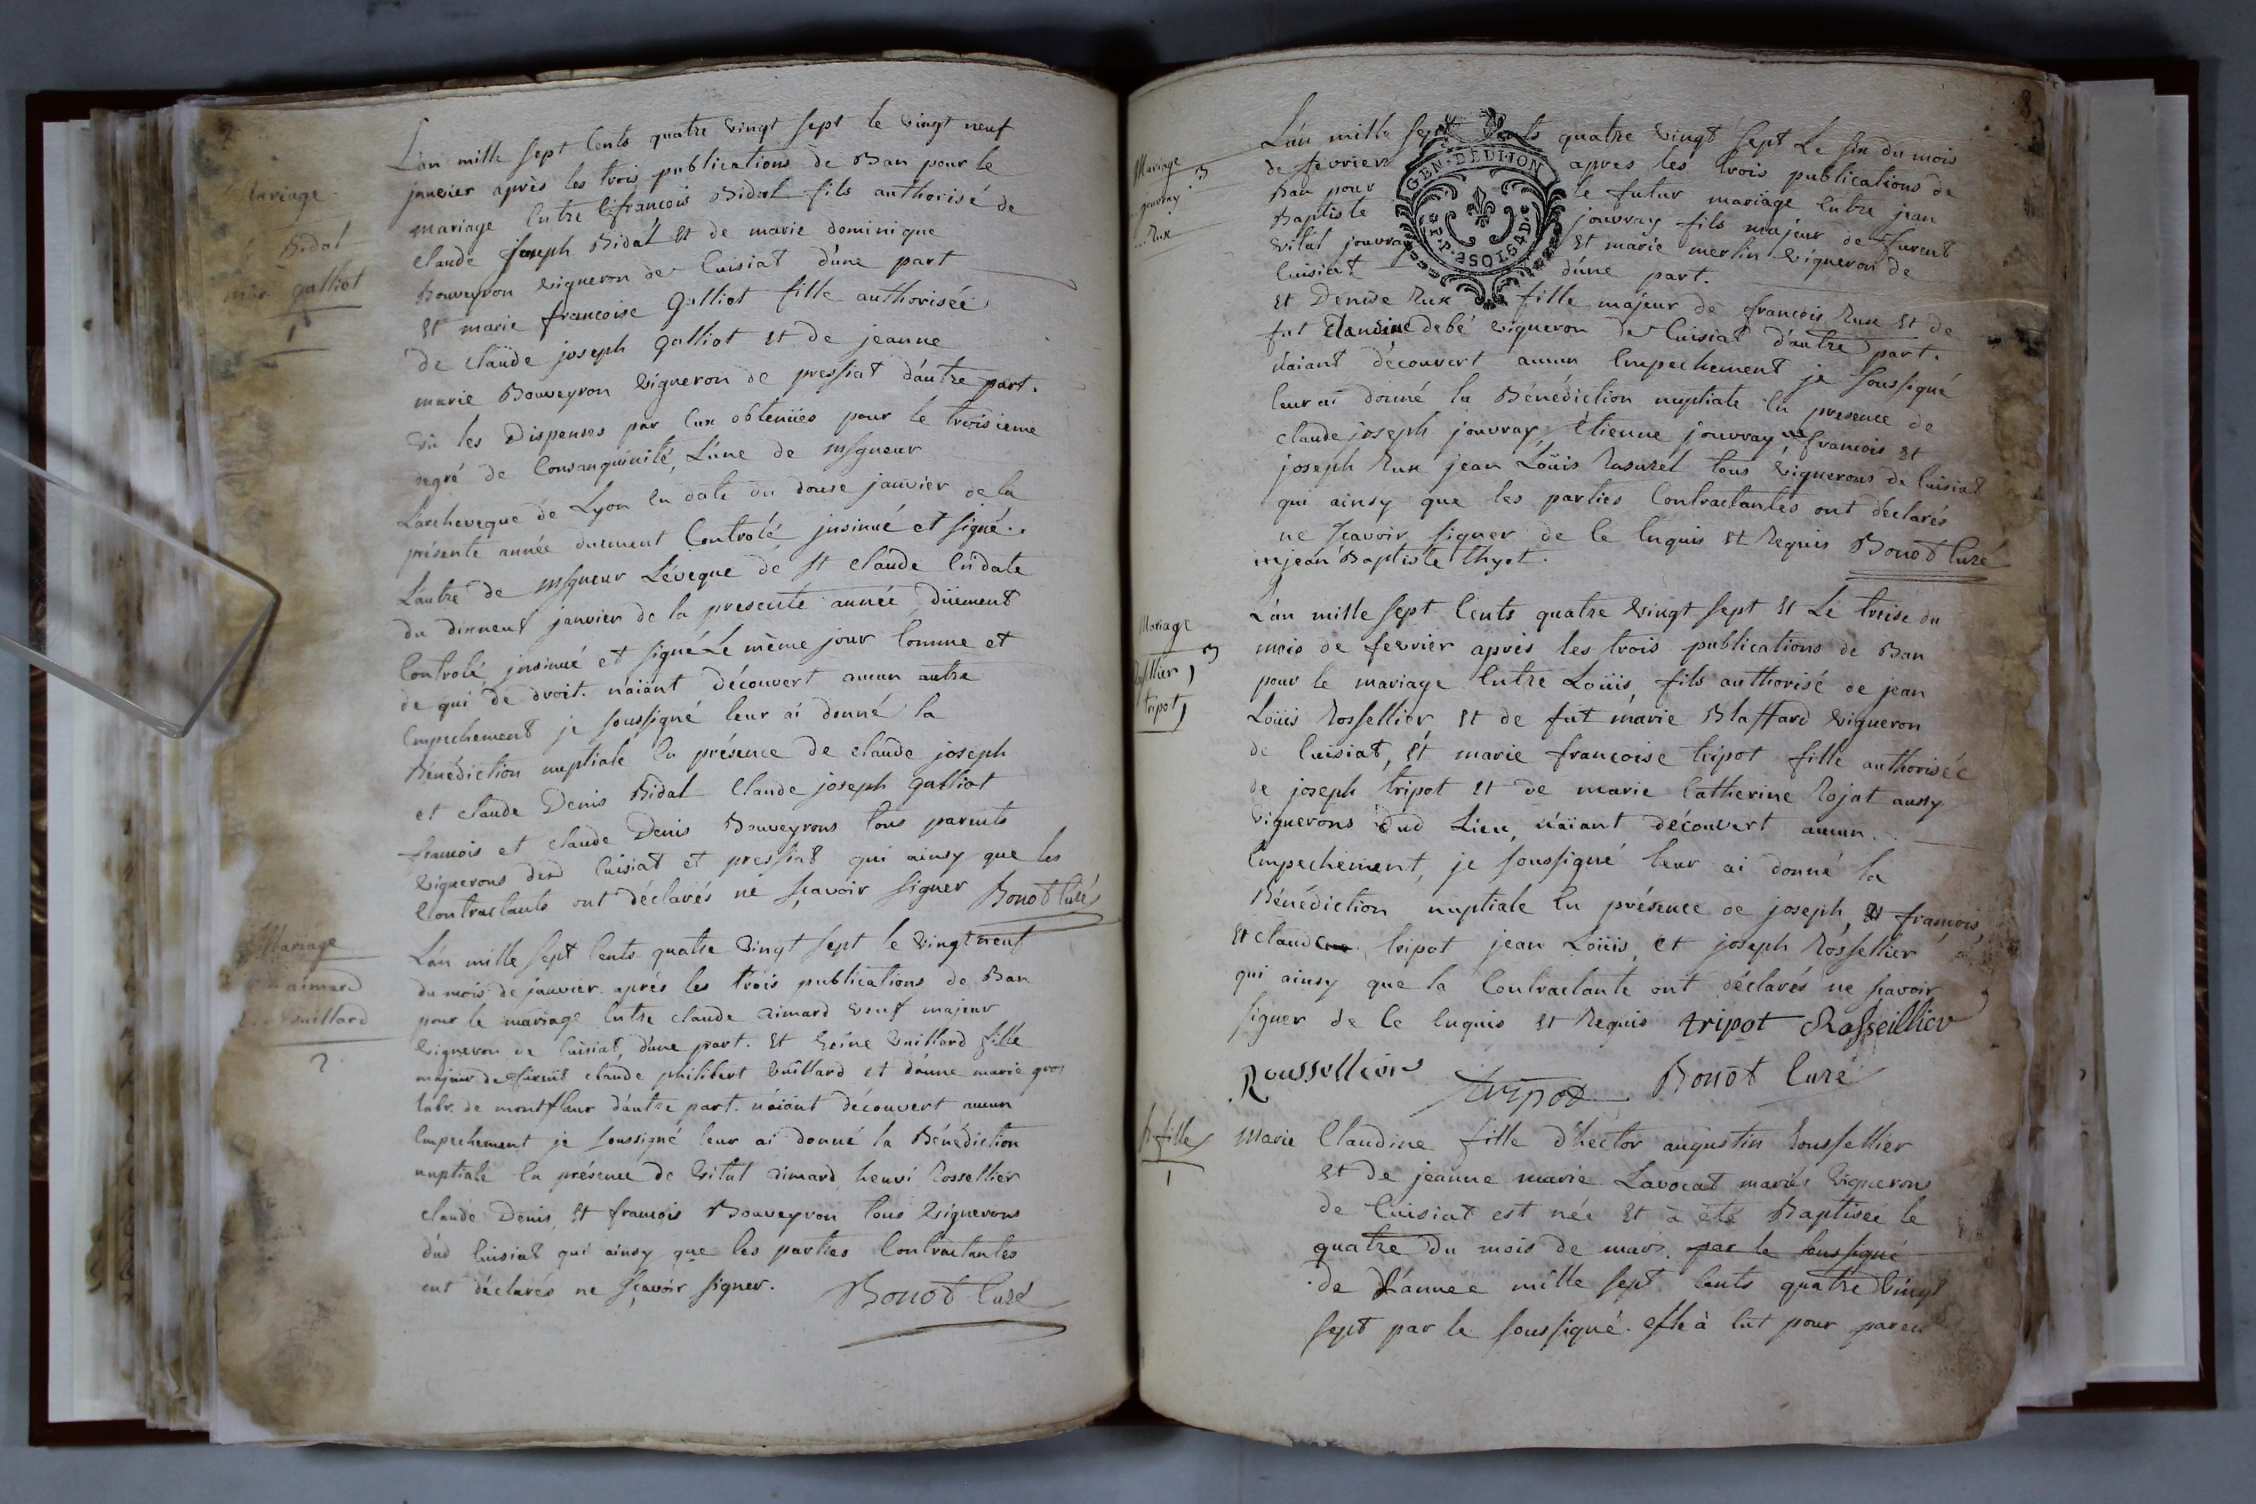 Mariage
Bidal
galliot
1
L'an mille sept Cents quatre vingt sept le vingt neuf
janvier après les trois publications de Ban pour le
mariage Entre françois Bidal fils authorisé de
claude joseph Bidal Et de marie dominique
Bouveyron vigneron de Cuisiat d'une part
Et marie françoise galliot fille authorisée
de claude joseph galliot Et de jeanne
marie Bouveyron vigneron de pressiat d'autre part.
vû les Dispenses par Eux obtenües pour le troisieme
degré de Consanguinité, L'une de msgneur
L'archeveque de Lyon En date du douse janvier de la
présente année duement Controlé jnsinué et signé.
L'autre de msgneur L'éveque de st claude En date
du dixneuf janvier de la presente année, düement
Controlé, jnsinué et signé Le même jour Comme et
de qui de droit. n'aïant découvert aucun autre
Empechement je soussigné leur ai donné la
Bénédiction nuptiale En présence de claude joseph
et claude Denis Bidal Claude joseph galliot
françois et claude Denis Bouveyrons tous parents
vignerons dud Cuisiat et pressiat qui ainsy que les
Contractants ont déclarés ne sçavoir signer Bonot Curé
Mariage
aimard
vuillard
2
L'an mille sept Cents quatre vingt sept le vingt neuf
du mois de janvier après les trois publications de Ban
pour le mariage Entre claude aimard veuf majeur
vigneron de Cuisiat, d'une part. Et Reine vuillard fille
majeur de furent claude philibert vuillard et d'anne marie gros
labr. de montfleur d'autre part. n'aïant découvert aucun
Empechement je soussigné leur ai donné la Bénédiction
nuptiale En présence de vital aimard, henri Rossellier
claude Denis, Et françois Bouveyron tous vignerons
dud Cuisiat qui ainsy que les parties Contractantes
ont déclarés ne sçavoir signer. Bonot Curé
8
Mariage
jouvray
Rux
3
GEN·DÉLITION
L'an mille sept Cents quatre vingt sept Le six du mois
de fevrier après les trois publications de
Ban pour le futur mariage Entre jean
Baptiste jouvray fils majeur de furent
vital jouvray Et marie merlin vigneron de
Cuisiat d'une part.
Et Denise Rux fille majeur de françois Rux Et de
fut Claudine debé vigneron de Cuisiat d'autre part.
n'aiant découvert aucun Empechement je soussigné
leur ai donné la Bénédiction nuptiale En presence de
claude joseph jouvray, Etienne jouvray françois Et
joseph Rux jean Loüis Rasurel tous vignerons de Cuisiat
qui ainsy que les parties Contractantes ont déclarés
ne sçavoir signer de Ce Enquis Et Requis Bonot Curé
jean Baptiste thyot.
Mariage
Rossellier
tripot
3
L'an mille sept Cents quatre vingt sept Et Le treise du
mois de fevrier après les trois publications de Ban
pour le mariage Entre Loüis, fils authorisé de jean
Loüis Rossellier, Et de fut marie Blaffard vigneron
de Cuisiat, Et marie françoise tripot fille authorisée
de joseph tripot Et de marie Catherine Rojat aussy
vignerons dud Lieu, n'aïant découvert aucun
Empechement, je soussigné leur ai donné la
Bénédiction nuptiale En présence de joseph, Et françois,
Et claude tripot jean Loüis, et joseph Rossellier
qui ainsy que la Contractante ont déclarés ne sçavoir
signer de Ce Enquis Et Requis tripot Rasseillier
Roussellier tripot Bonot Curé
fille
1
Marie Claudine fille d'hector augustin Roussellier
Et de jeanne marie Lavocat mariés vignerons
de Cuisiat est née Et à été Baptisée le
quatre du mois de mars. par le soussigné
de L'année mille sept Cents quatre vingt
sept par le soussigné. Elle à Eut pour parein